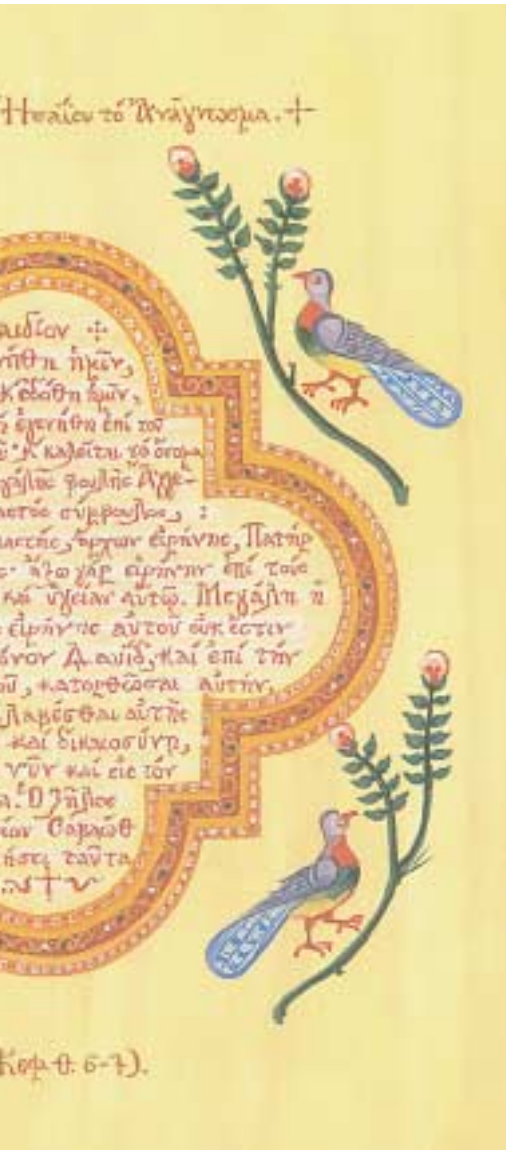 Ἡσαΐου τό Ἀνάγνωσμα. +
αιδίον
νήθη ἡμῖν,
κ ἐδόθη ἡμῖν,
ἡ ἐγενήθη ἐπί τοῦ
κ καλεῖται τό ὄνομα
γάλης βουλῆς Ἄγγε-
αστός σύμβουλος, :
ιαστής, ἄρχων εἰρήνης, Πατήρ
ς· ἄξω γάρ εἰρήνην ἐπί τούς
καί ὑγείαν αὐτῷ. Μεγάλη ἡ
εἰρήνης αὐτοῦ οὐκ ἔστιν
όνον Δαυίδ, καί ἐπί τήν
οῦ, κατορθῶσαι αὐτήν,
λαβέσθαι αὐτῆς
καί δικαιοσύνῃ,
νῦν καί εἰς τόν
α. Ὁ ζῆλος
ίου Σαβαώθ
ήσει ταῦτα.
Κεφ. θ. 6-7).